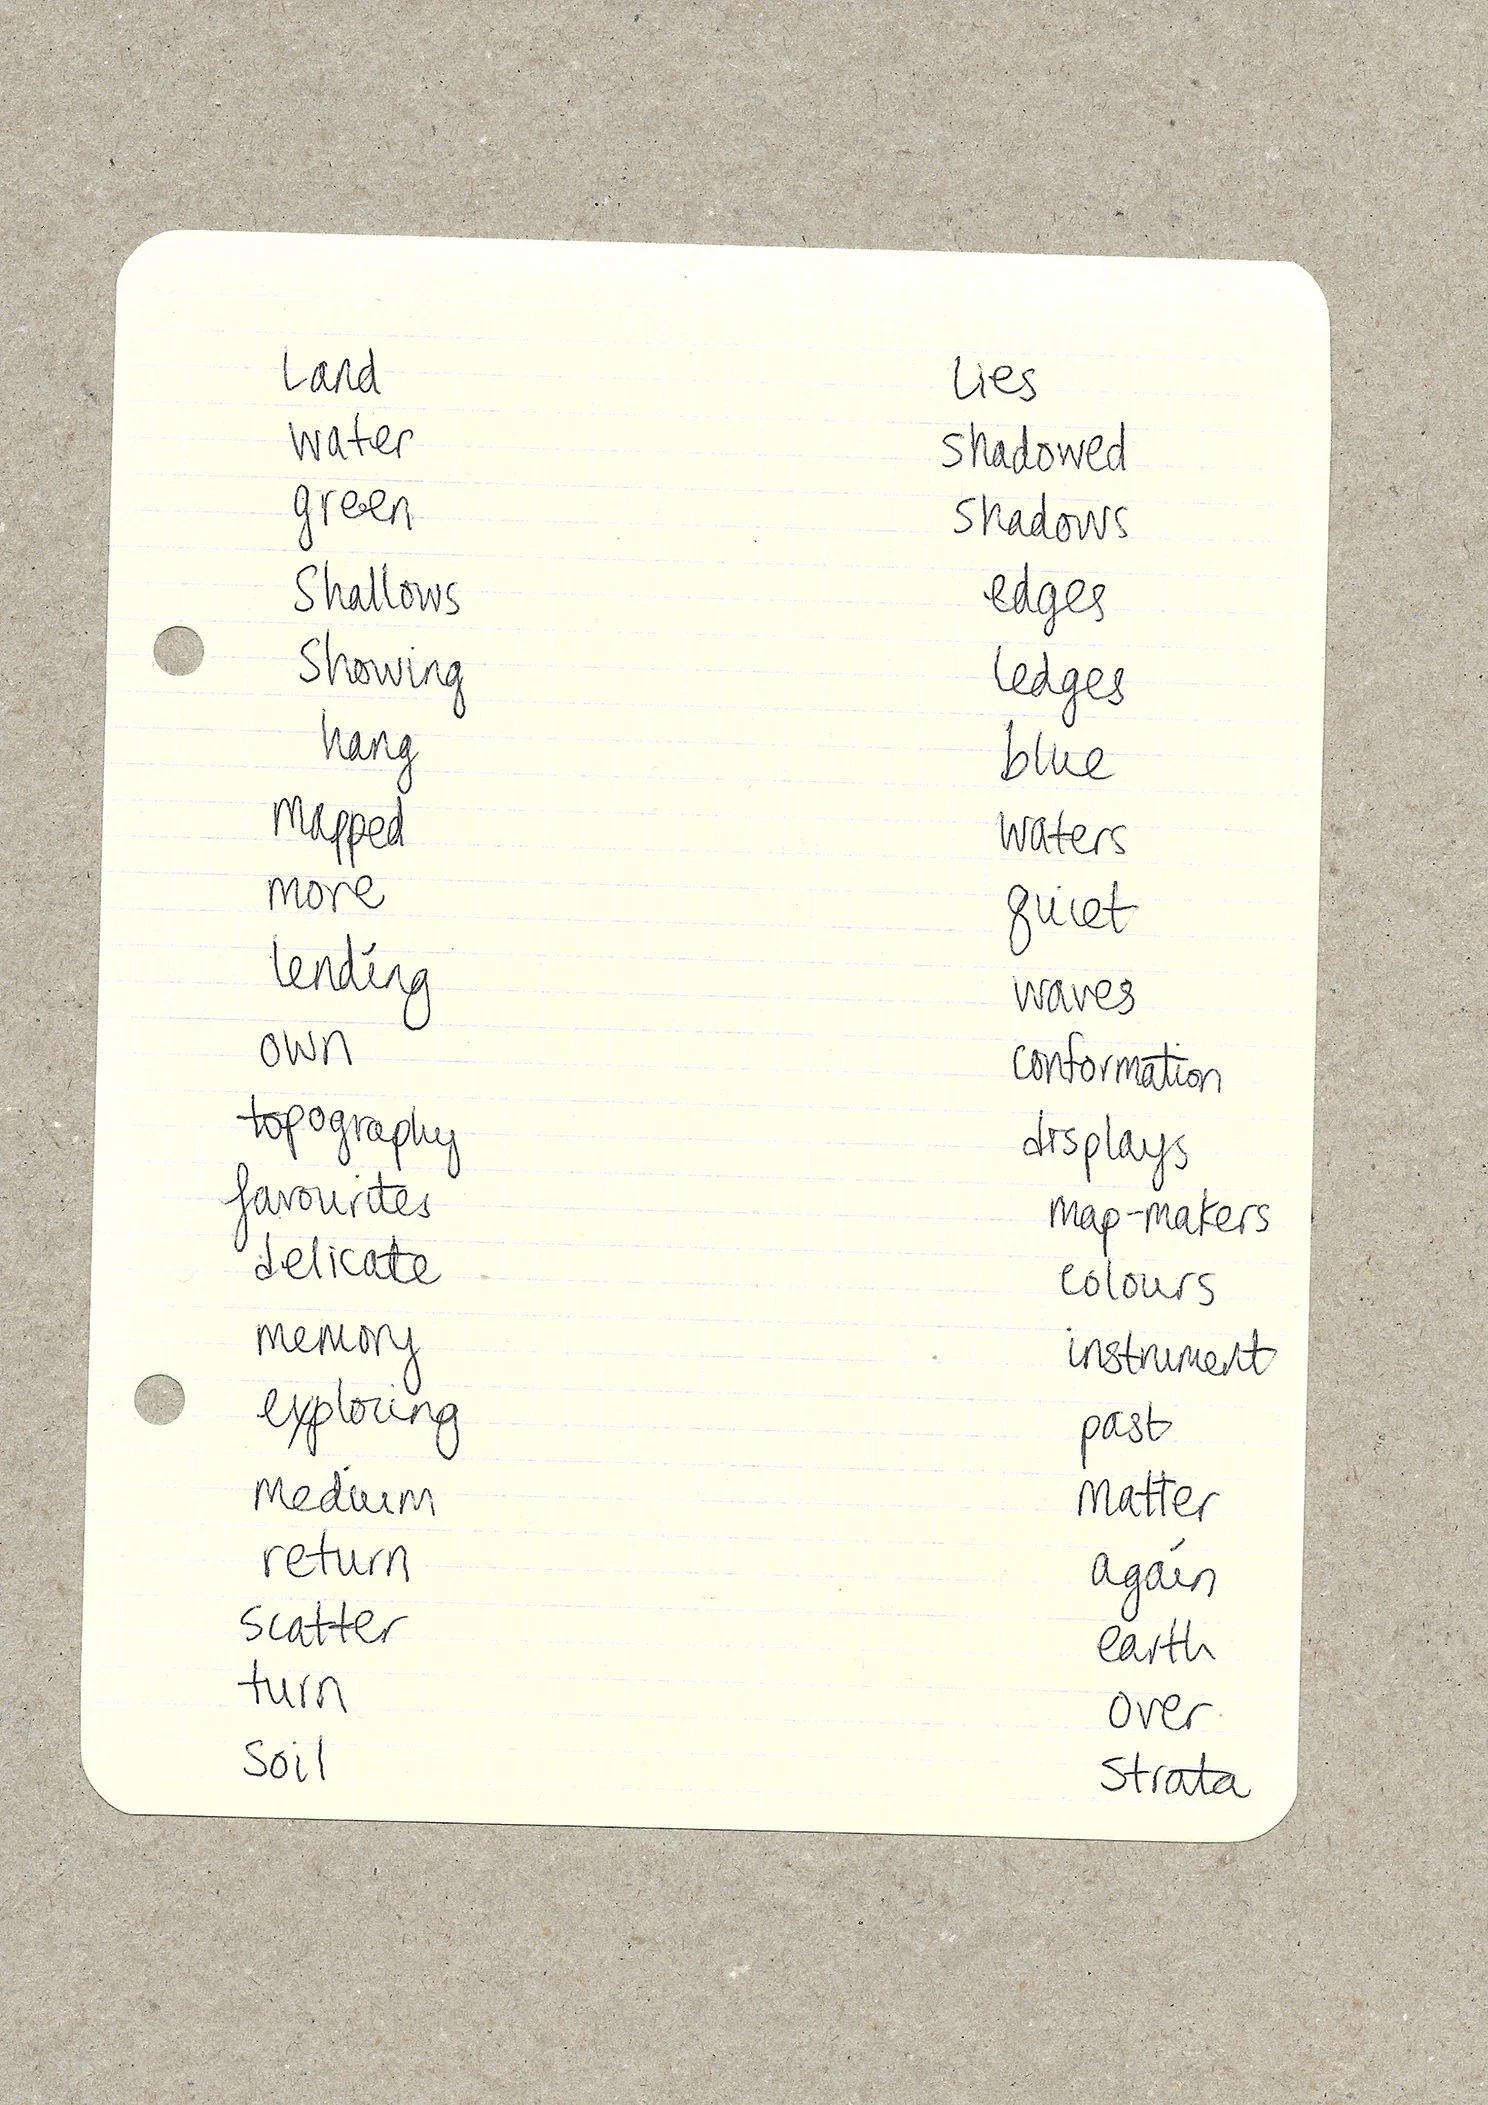 Land Lies
water shadowed
green shadows
Shallows edges
Showing ledges
hang blue
mapped waters
more quiet
lending waves
own conformation
topography displays
favourites map-makers
delicate colours
memory instrument
exploring past
medium matter
return again
scatter earth
turn over
Soil Strata